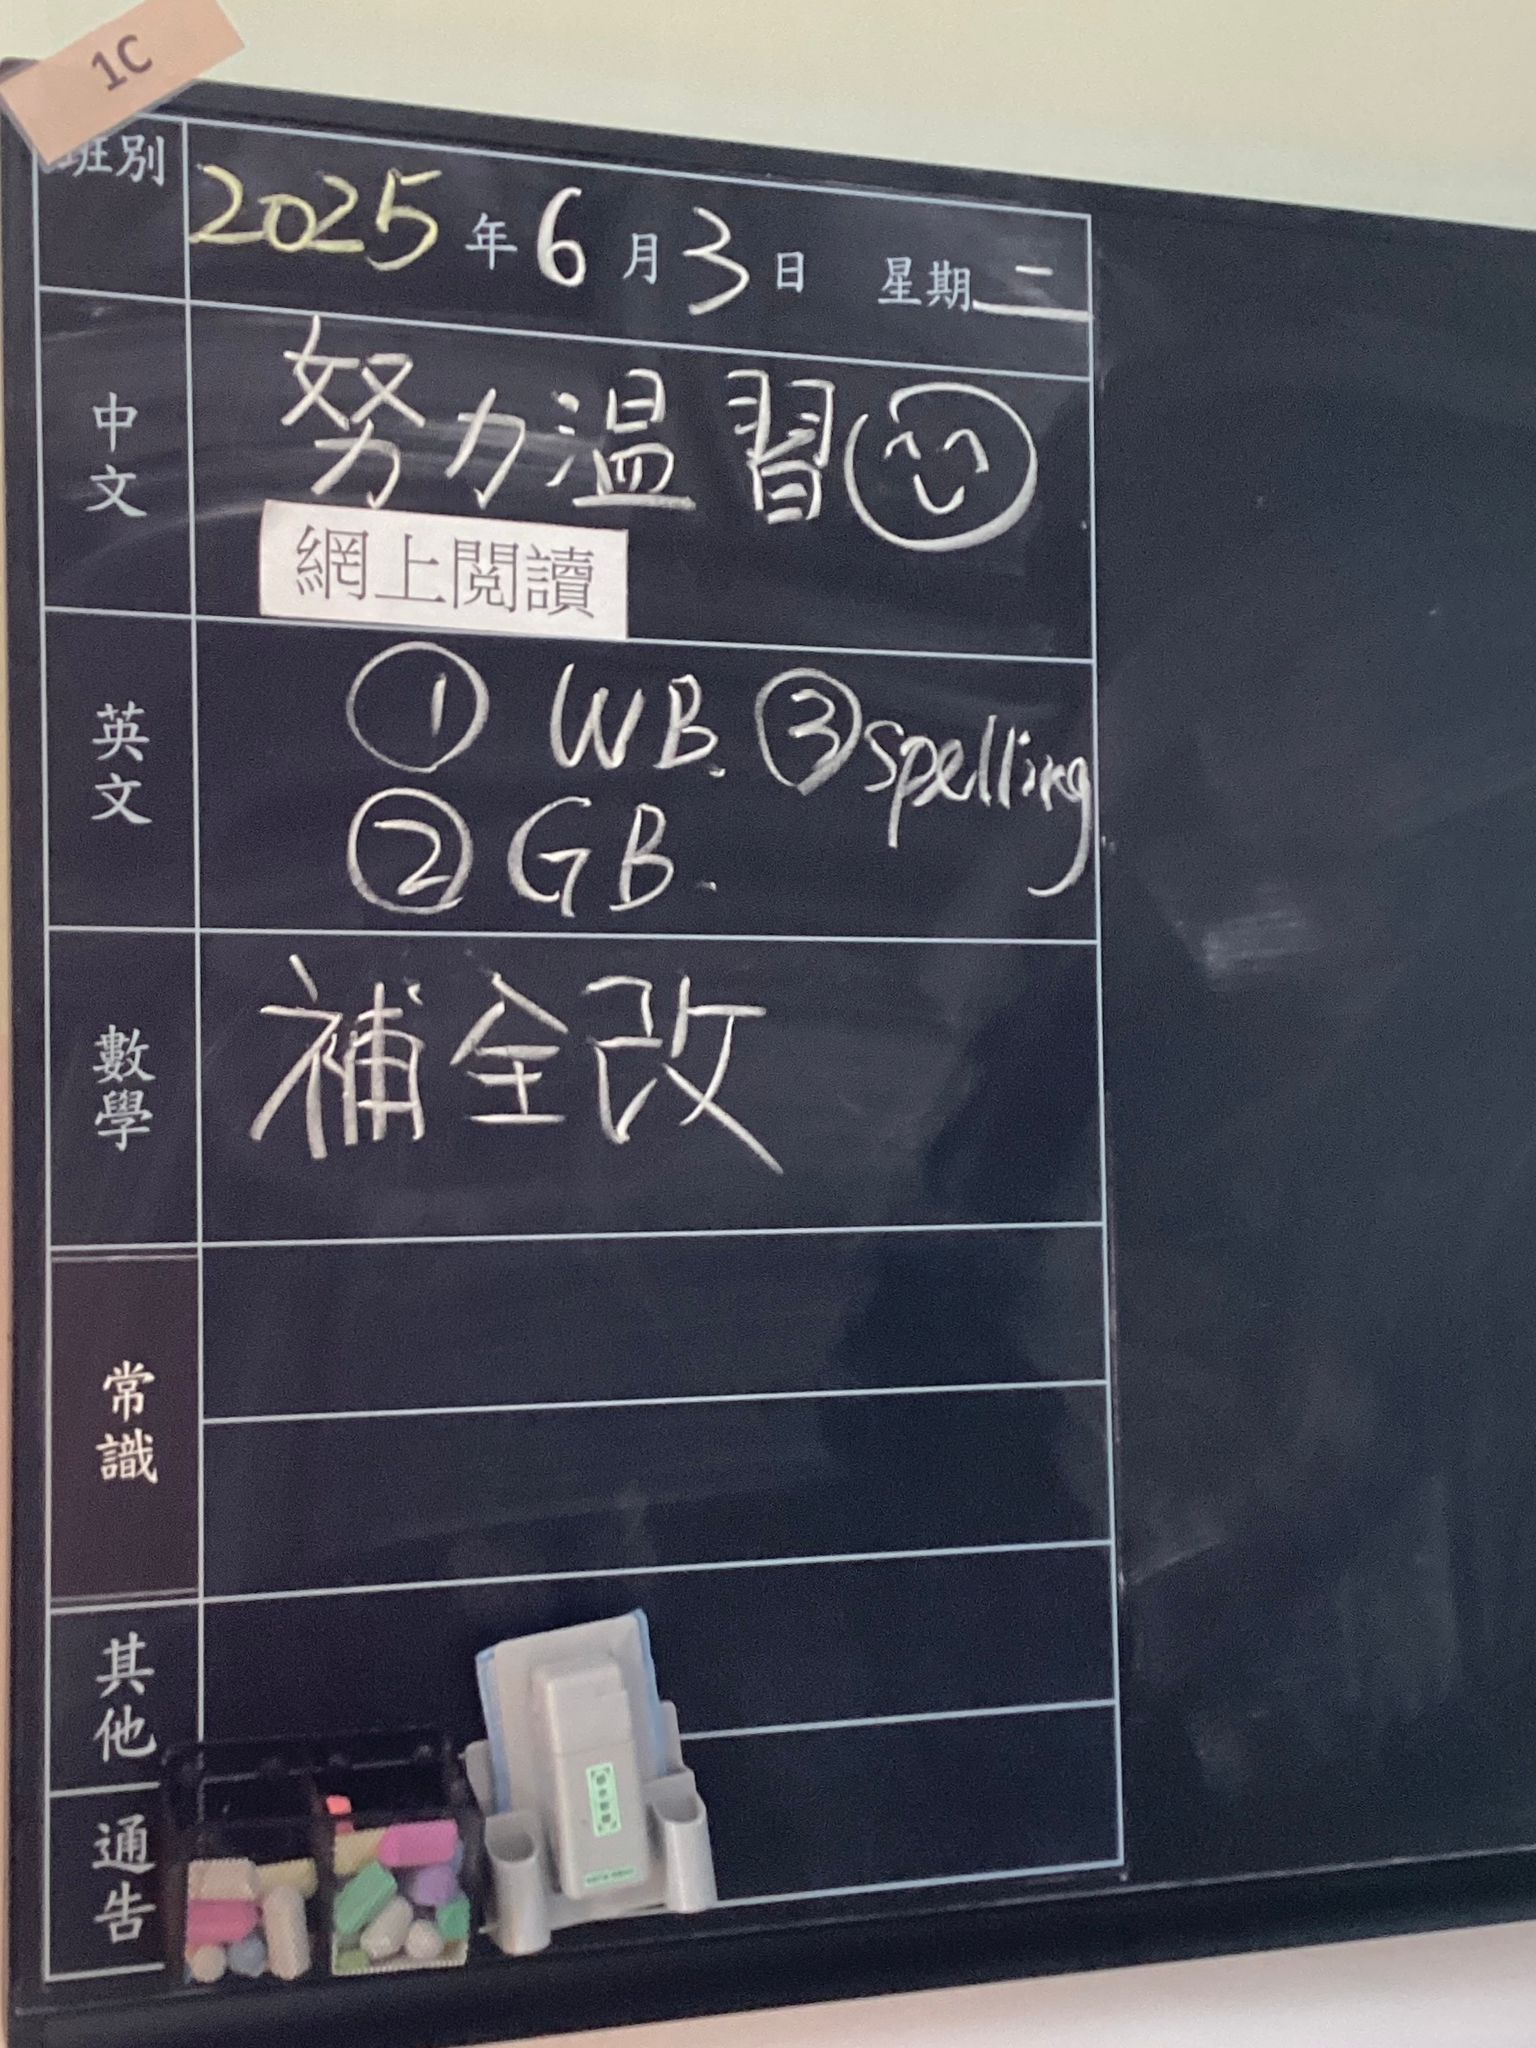 1C
班別
2025年6月3日 星期二
中文
努力溫習
網上閱讀
英文
① WB. ③ spelling
② GB.
數學
補全改
常識
其他
通告